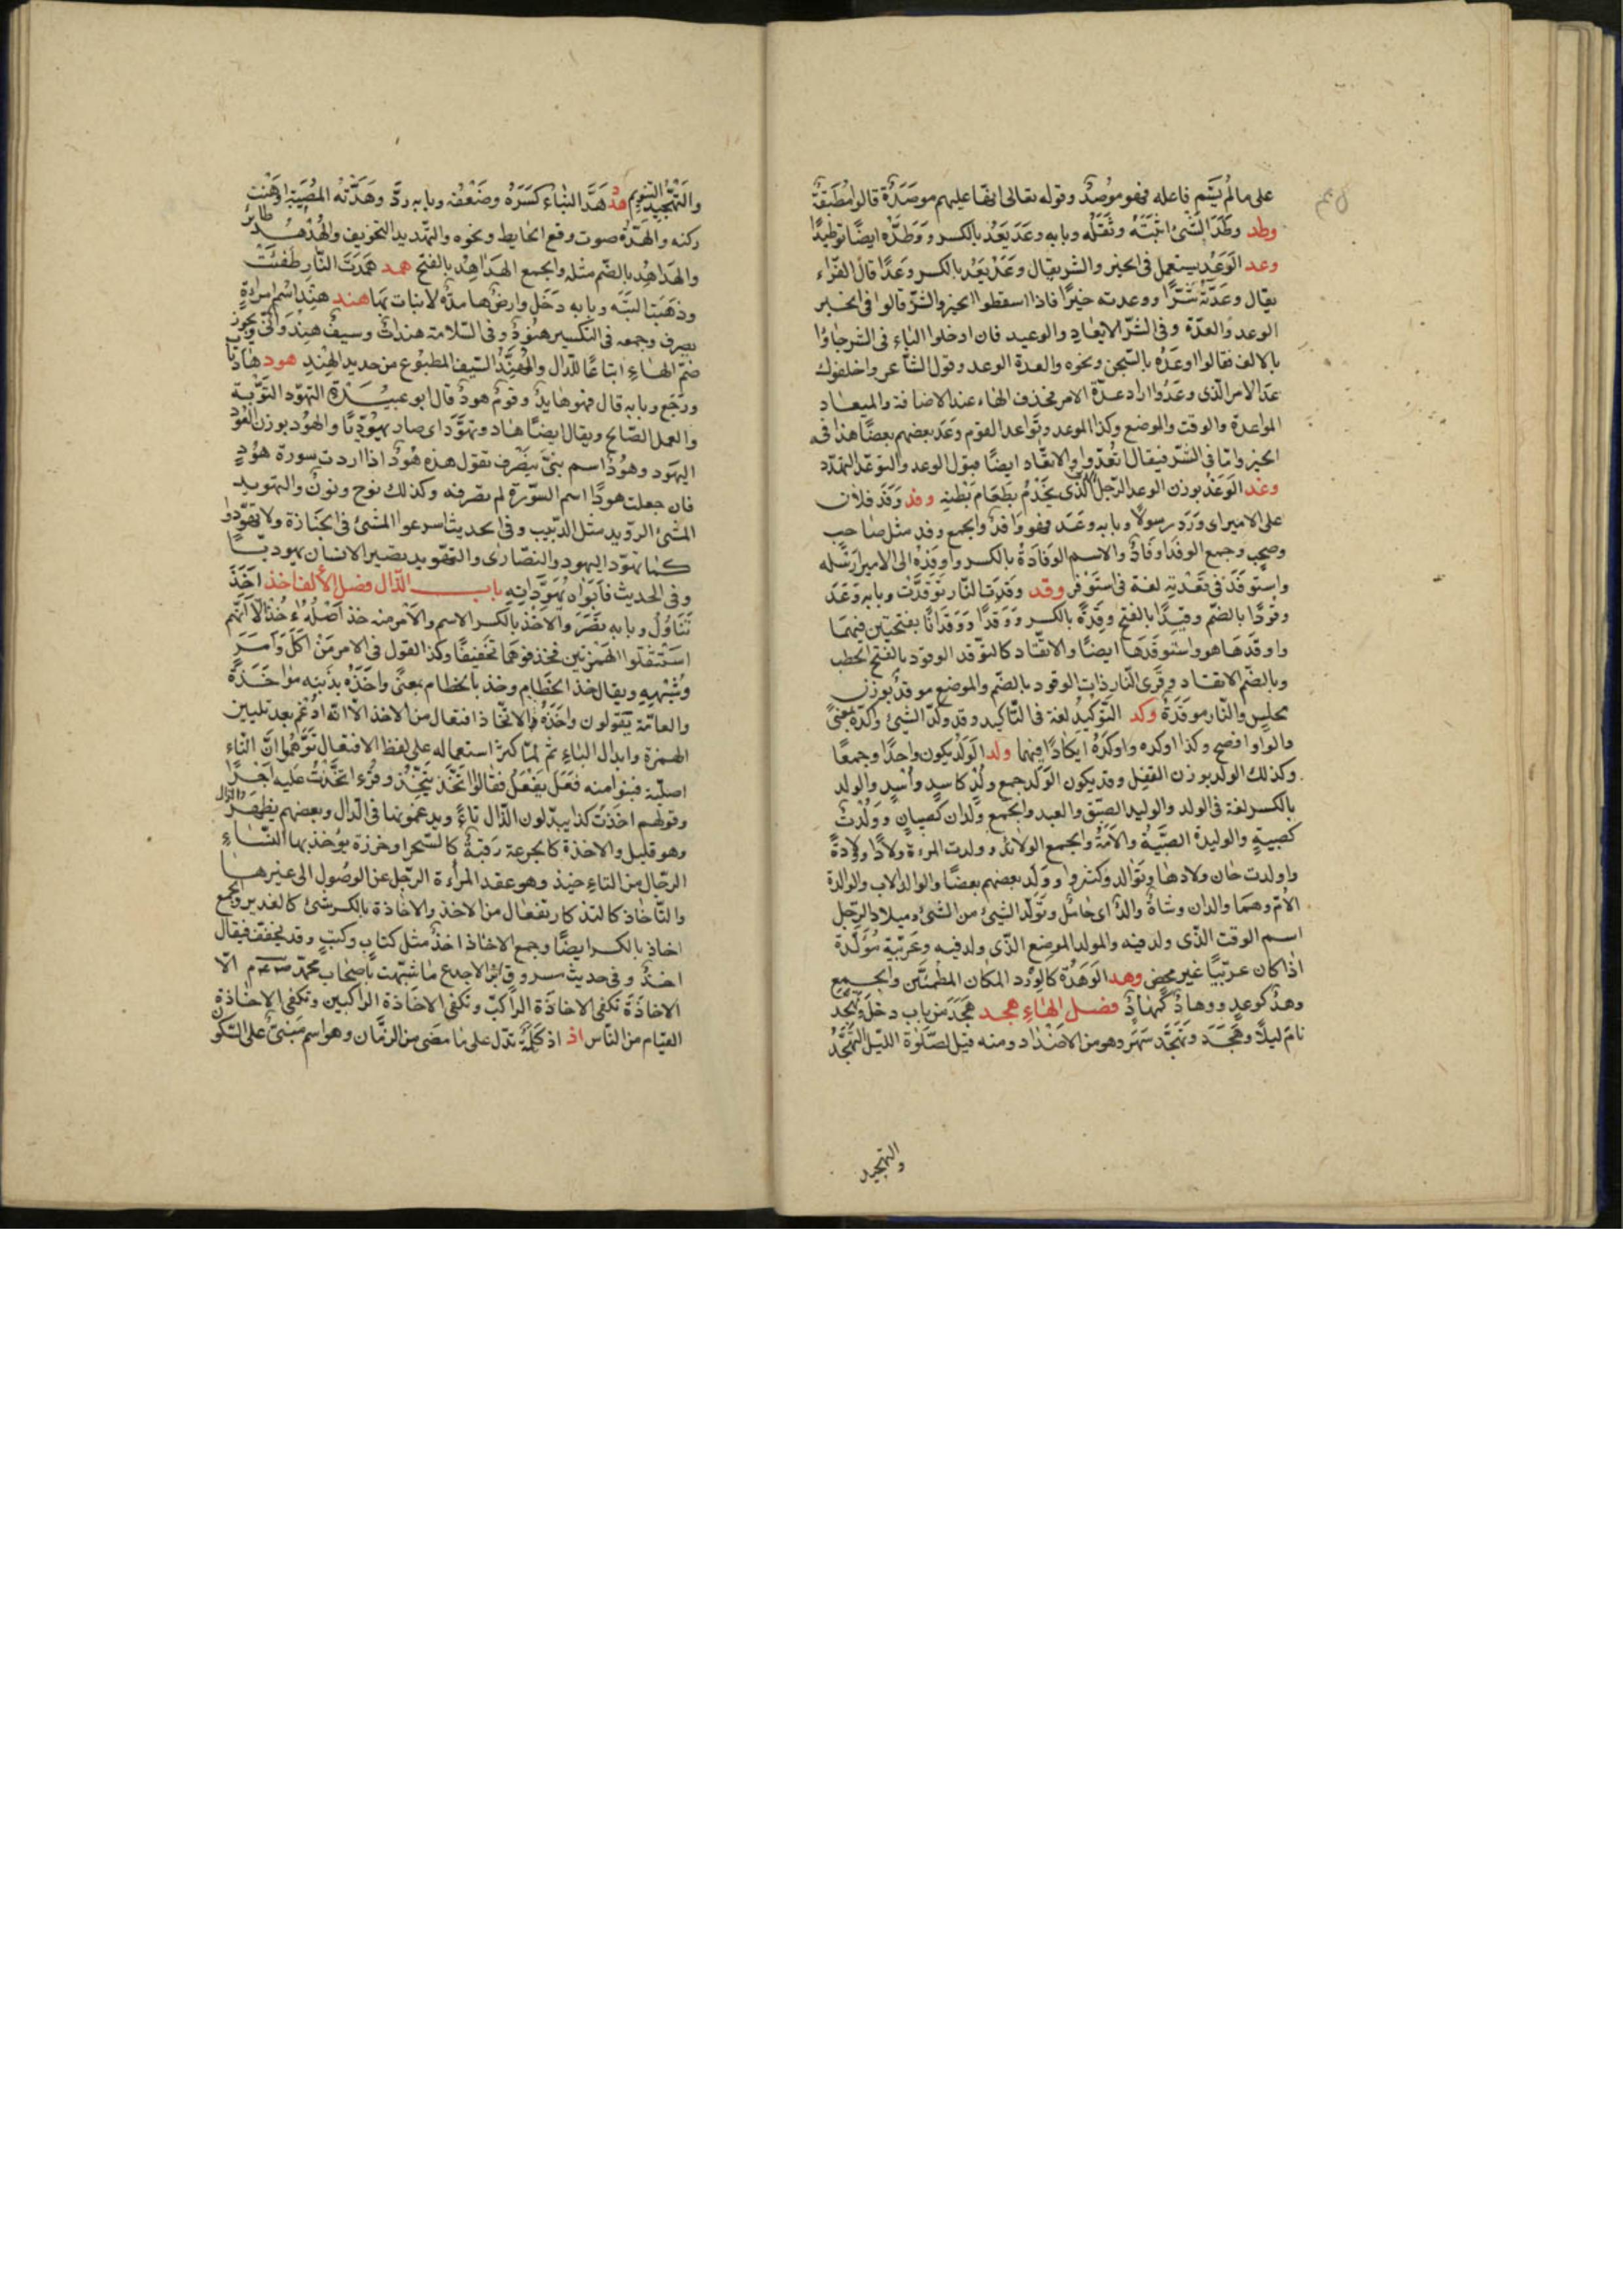 على مالم يسم فاعله فهو موصد وقوله تعالى انها عليهم موصدة قالوا مطبقة
وطد وطد الشئ اثبته وثقله وبابه وعد يعد بالكسر ووطده ايضا توطيدا
وعد الوعد يستعمل فى الخير والشر يقال وعد يعد بالكسر وعدا قال الفراء
يقال وعدته شرا ووعدته خيرا فاذا اسقطوا الخير والشر قالوا فى الخير
الوعد والعدة وفى الشر الايعاد والوعيد فان ادخلوا الباء فى الشر جاؤا
بالالف فقالوا اوعده بالسجن ونحوه والعدة الوعد وقول الشاعر واخلفوك
عد الامر الذى وعدوا اراد عدة الامر فحذف الهاء عند الاضافة والميعاد
المواعدة والوقت والموضع وكذا الموعد وتواعد القوم وعد بعضهم بعضا هذا فى
الخير واما فى الشر فيقال اتعدوا والاتعاد ايضا قبول الوعد والتوعد التهدد
وغد الوغد بوزن الوعد الرجل الذى يخدم بطعام بطنه وفد وفد فلان
على الامير اى ورد رسولا وبابه وعد فهو وافد والجمع وفد مثل صاحب
وصحب وجمع الوفد اوفاد والاسم الوفادة بالكسر واوفده الى الامير ارسله
واستوفد فى تعديه لغة فى استوفز وقد وقدت النار توقدت وبابه وعد
وقودا بالضم وقيدا بالفتح وقدة بالكسر ووقدا ووقدانا بفتحتين فيهما
واوقدها هو واستوقدها ايضا والاتقاد كالتوقد الوقود بالفتح الحطب
وبالضم الاتقاد وقرئ النار ذات الوقود بالضم والموضع موقد بوزن
مجلس والنار موقدة وكد التوكيد لغة فى التاكيد وقد وكد الشئ وكده بمعنى
والواو افصح وكذا اوكده واوكده ايكادا فيهما ولد الولد يكون واحدا وجمعا
وكذلك الولد بوزن القفل وقد يكون الولد جمع ولد كاسد واسد والولد
بالكسر لغة فى الولد والوليد الصبى والعبد والجمع ولدان كصبيان وولدة
كصبية والوليدة الصبية والامة والجمع الولائد وولدت المرءة ولادا وولادة
واولدت حان ولادها وتوالدوا كثروا وولد بعضهم بعضا والوالد الاب والوالدة
الام وهما والدان وشاة والد اى حامل وتولد الشئ من الشئ وميلاد الرجل
اسم الوقت الذى ولد فيه والمولد الموضع الذى ولد فيه وعربية مولدة
اذا كان عربيا غير محض وهد الوهدة كالورد المكان المطمئن والجمع
وهد كوعد ووهاد كمهاد فصل الهاء هجد هجد من باب دخل وتهجد
نام ليلا وهجد وتهجد سهر وهو من الاضداد ومنه قيل لصلوة الليل التهجد
والتهجيد
والتهجيد التنويم هد هد البناء كسره وضعفه وبابه رد وهدته المصيبة اوهنت
ركنه والهدة صوت وقع الحايط ونحوه والتهديد التخويف والهدهد طائر
والهداهد بالضم مثله والجمع الهداهد بالفتح همد همدت النار طفئت
وذهبت البتة وبابه دخل وارض هامدة لا نبات بها هند هند اسم امرءة
يصرف وجمعه فى التكسير هنود وفى السلامة هندات وسيف هندوانى يجوز
ضم الهاء اتباعا للدال والمهند السيف المطبوع من حديد الهند هود هاد تاب
ورجع وبابه قال فهو هايد وقوم هود قال ابو عبيدة التهود التوبة
والعمل الصالح ويقال ايضا هاد وتهود اى صار يهوديا والهود بوزن العود
اليهود وهود اسم نبى ينصرف تقول هذه هود اذا اردت سورة هود
فان جعلت هودا اسم السورة لم تصرفه وكذلك نوح ونون والتهويد
المشئ الرويد مثل الدبيب وفى الحديث اسرعوا المشئ فى الجنازة ولا تهودوا
كما تهود اليهود والنصارى والتهويد تصيير الانسان يهوديا
وفى الحديث فابواه يهودانه باب الذال فصل الالف اخذ اخذ
تناول وبابه نصر والاخذ بالكسر الاسم والامر منه خذ اصله اءخذ الا انهم
استثقلوا الهمزتين فحذفوهما تخفيفا وكذا القول فى الامر من اكل وامر
وشبهه ويقال خذ الخطام وخذ بالخطام بمعنى واخذه بذنبه مواخذة
والعامة تقولون واخذه والاتخاذ افتعال من الاخذ الا انه ادغم بعد تليين
الهمزة وابدال التاء ثم لما كثر استعماله على لفظ الافتعال توهموا ان التاء
اصلية فبنوا منه فعل يفعل فقالوا تخذ يتخذ وقرء لتخذت عليه اجرا
وقولهم اخذت كذا يبدلون الذال تاء ويدغمونها فى الدال وبعضهم يظهر الذال
وهو قليل والاخذة كالجرعة رقية كالسحر او خرزة يؤخذ بها النساء
الرجال من التاء حيذ وهو عقد المرأة الرجل عن الوصول الى غيرها
والتاخاذ كالتذكار تفعال من الاخذ والاخاذة بالكسر شئ كالغدير والجمع
اخاذ بالكسر ايضا وجمع الاخاذ اخذ مثل كتاب وكتب وقد يخفف فيقال
اخذ وفى حديث مسروق بن الاجدع ما شبهت باصحاب محمد صلعم الا
الاخاذة تكفى الاخاذة الراكب وتكفى الاخاذة الراكبين وتكفى الاخاذة
الفيام من الناس اذ اذ كلمة تدل على ما مضى من الزمان وهو اسم مبنى على السكون